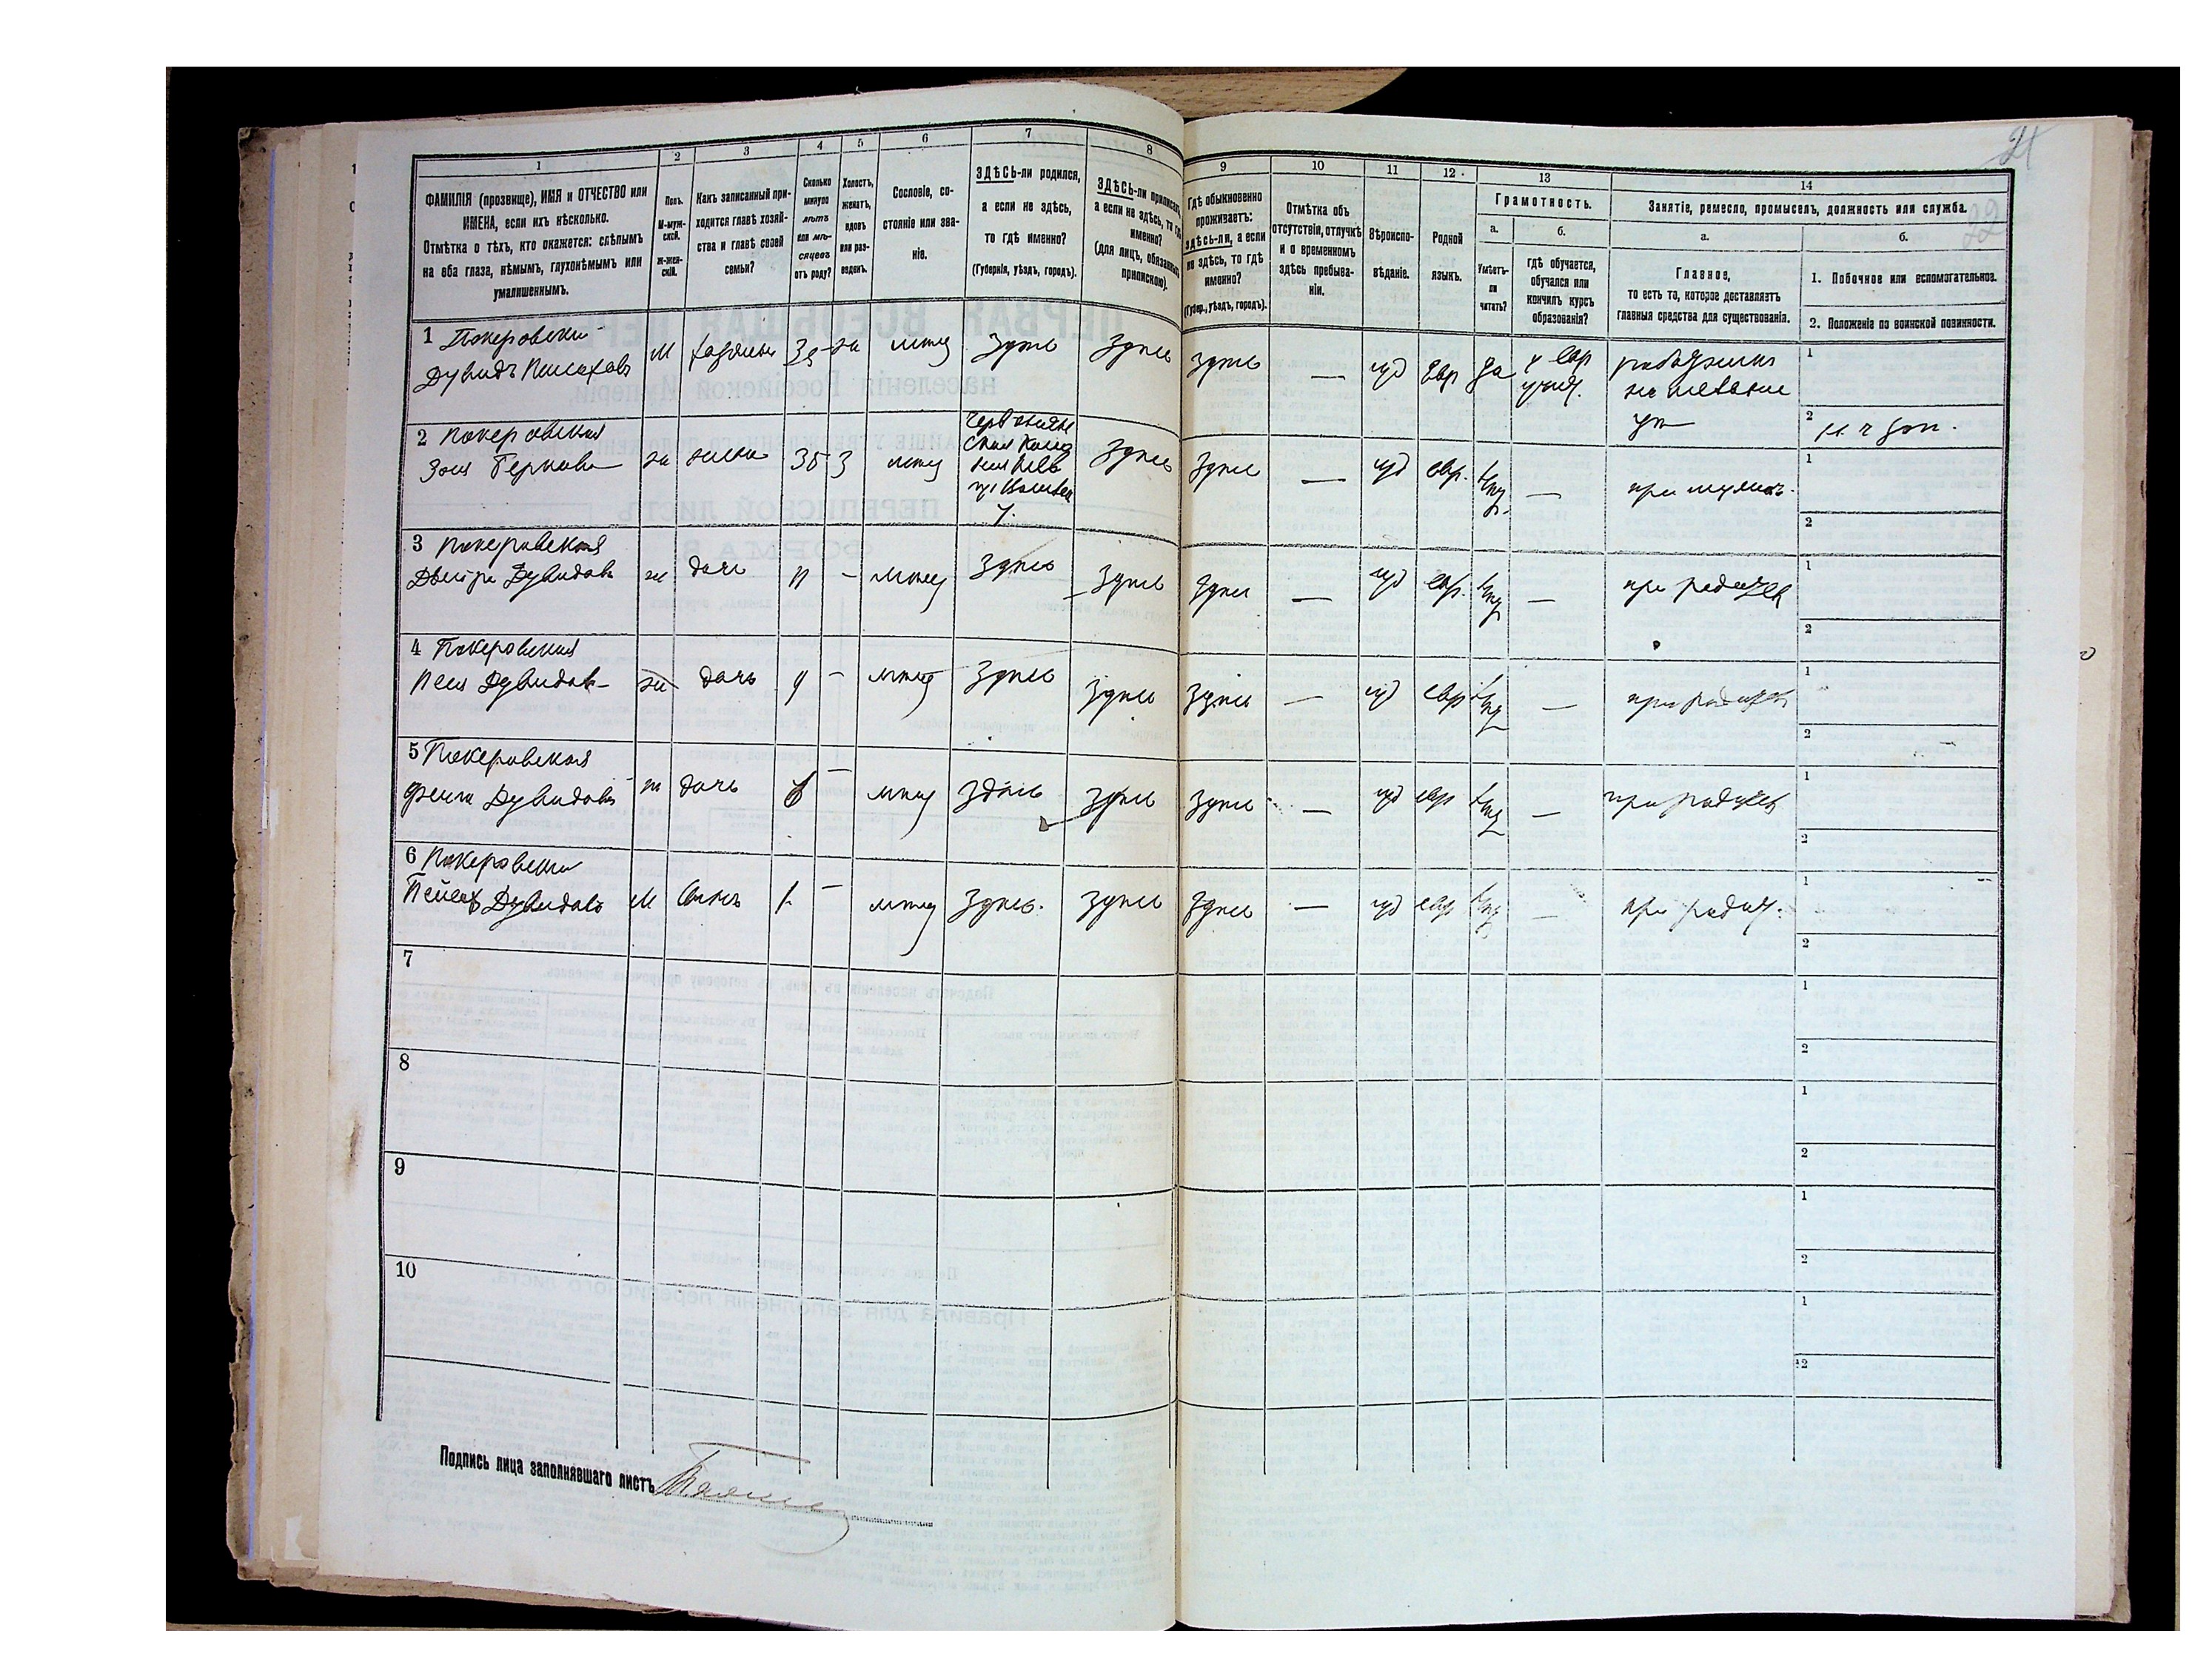 21
22
1
2
3
4
5
6
7
8
9
10
11
12
13
14
ФАМИЛІЯ (прозвище), ИМЯ и ОТЧЕСТВО или
ИМЕНА, если ихъ нѣсколько.
Отмѣтка о тѣхъ, кто окажется: слѣпымъ
на оба глаза, нѣмымъ, глухонѣмымъ или
умалишеннымъ.
Полъ.
М-муж-
ской.
ж-жен-
скій.
Какъ записанный при-
ходится главѣ хозяй-
ства и главѣ своей
семьи?
Сколько
минуло
лѣтъ
или мѣ-
сяцевъ
отъ роду?
Холостъ,
женатъ,
вдовъ
или раз-
веденъ.
Сословіе, со-
стояніе или зва-
ніе.
ЗДѢСЬ-ли родился,
а если не здѣсь,
то гдѣ именно?
(Губернія, уѣздъ, городъ).
ЗДѢСЬ-ли приписанъ,
а если не здѣсь, то гдѣ
именно?
(для лицъ, обязанныхъ
припискою).
Гдѣ обыкновенно
проживаетъ:
здѣсь-ли, а если
не здѣсь, то гдѣ
именно?
(Губер., уѣздъ, городъ).
Отмѣтка объ
отсутствіи, отлучкѣ
и о временномъ
здѣсь пребыва-
ніи.
Вѣроиспо-
вѣданіе.
Родной
языкъ.
Грамотность.
а.
б.
Умѣетъ-
ли
читать?
гдѣ обучается,
обучался или
кончилъ курсъ
образованія?
Занятіе, ремесло, промыселъ, должность или служба.
а.
б.
Главное,
то есть то, которое доставляетъ
главныя средства для существованія.
1. Побочное или вспомогательное.
2. Положеніе по воинской повинности.
1 Покеровскій
Дувидъ Пейсаховъ
М
хозяинъ
мѣщ
здѣсь
здѣсь
здѣсь
—
іуд
евр
да
1
2
2 Покеровская
жена
35
З
мѣщ
здѣсь
здѣсь
—
іуд
евр.
—
при мужѣ
1
2
3 Покеровская
Двейра Дувидова
ж
дочь
11
-
мѣщ
здѣсь
здѣсь
здѣсь
—
іуд
евр.
—
при родител
1
2
4 Покеровская
Песя Дувидов
ж
дочь
-
мѣщ
здѣсь
здѣсь
здѣсь
—
іуд
евр
—
при родител
1
2
5 Покеровская
Фейга Дувидова
ж
дочь
—
мѣщ
здѣсь
здѣсь
здѣсь
—
іуд
евр
—
при родител
1
2
6 Покеровскій
Пейсах Дувидовъ
М
сынъ
1
—
мѣщ
здѣсь.
здѣсь
здѣсь
—
іуд
евр
—
при родит.
1
2
7
1
2
8
1
2
9
1
2
10
1
2
Подпись лица заполнявшаго листъ